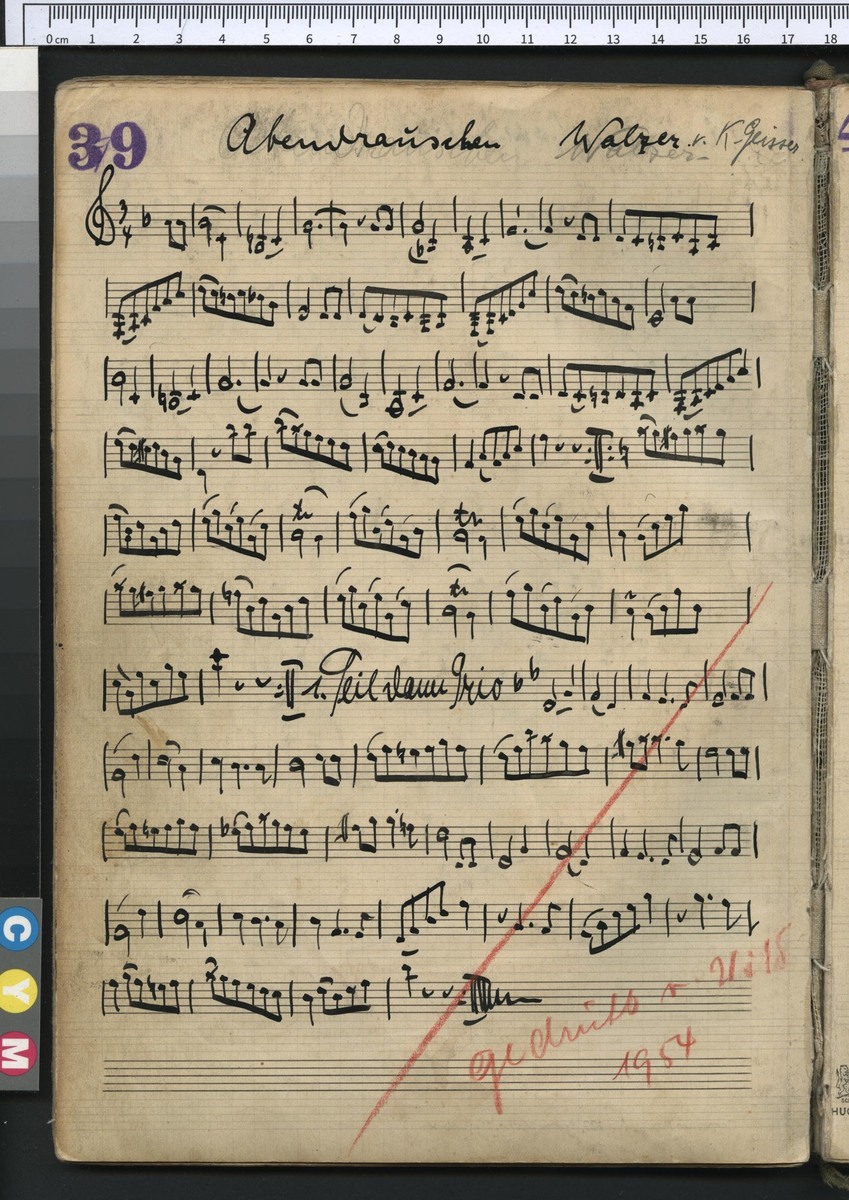 0 cm 1 2 3 4 5 6 7 8 9 10 11 12 13 14 15 16 17 18
39 Abendrauschen Walzer v. K. Geisser
3 4
tr tr
tr
1. Teil dann Trio
gedruckt v.
1954
C
Y
M
HUG